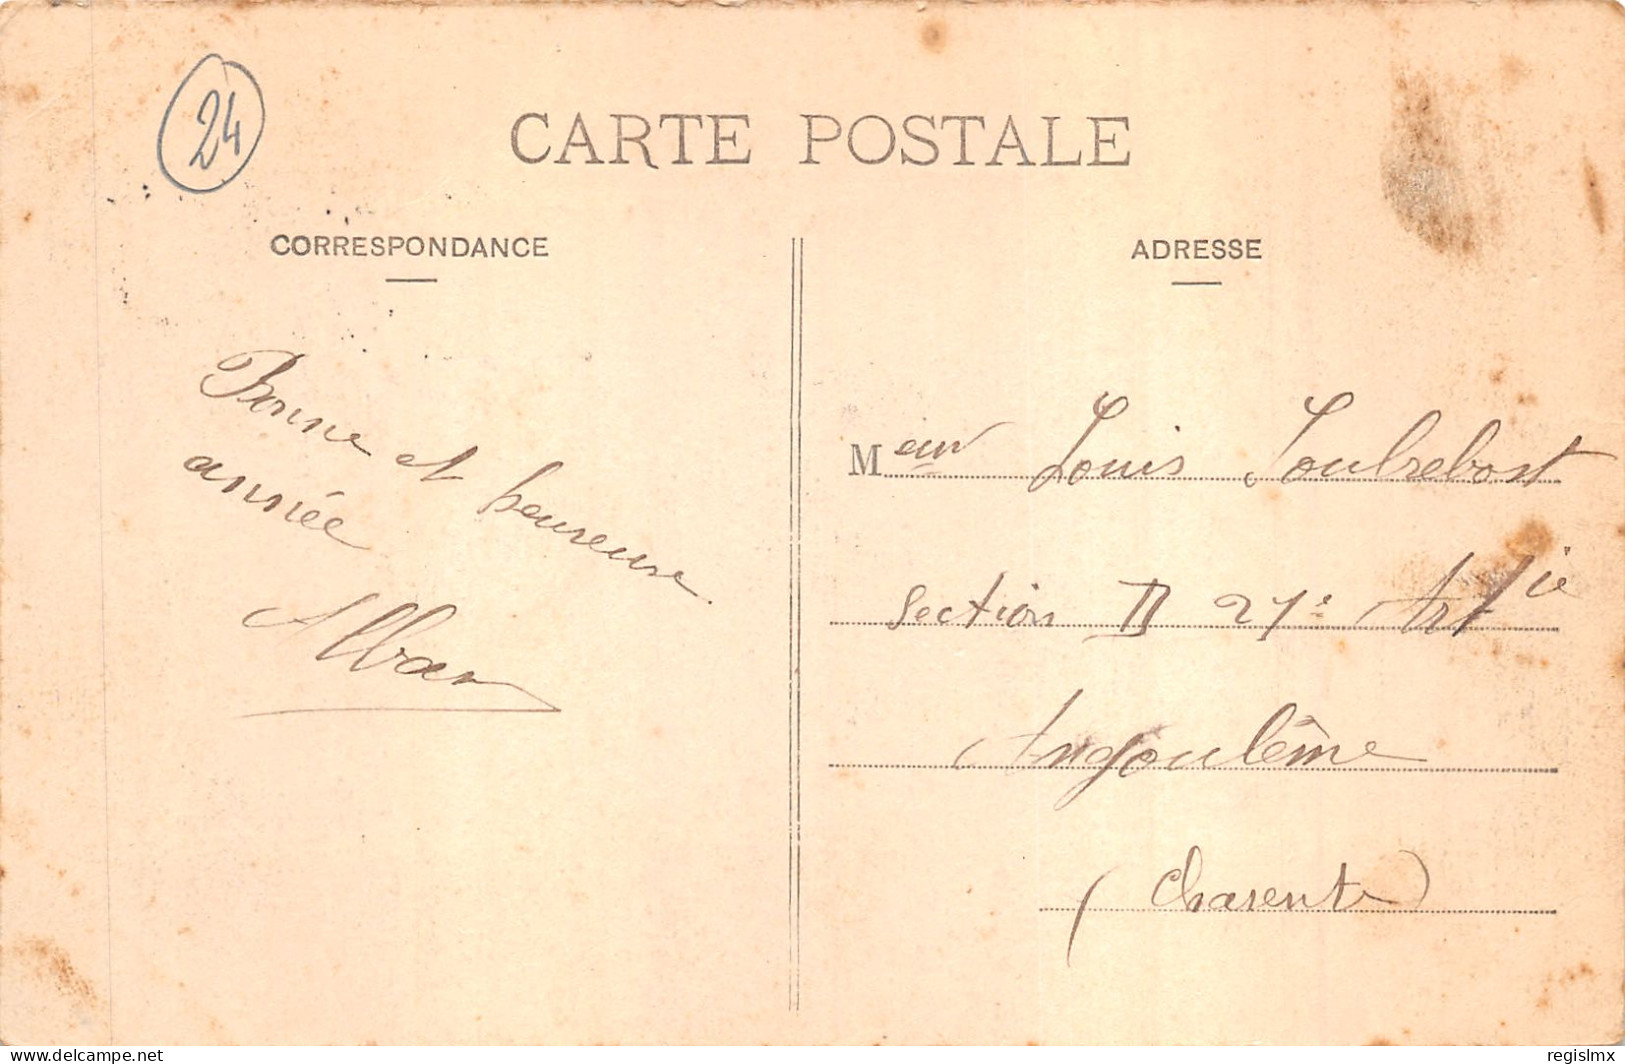 24
CARTE POSTALE
CORRESPONDANCE
Bonne et heureuse
année
Alban
ADRESSE
Meur Louis Soulrebost
Section II 21e Artie
Angoulême
(Charente)
delcampe.net
regislmx